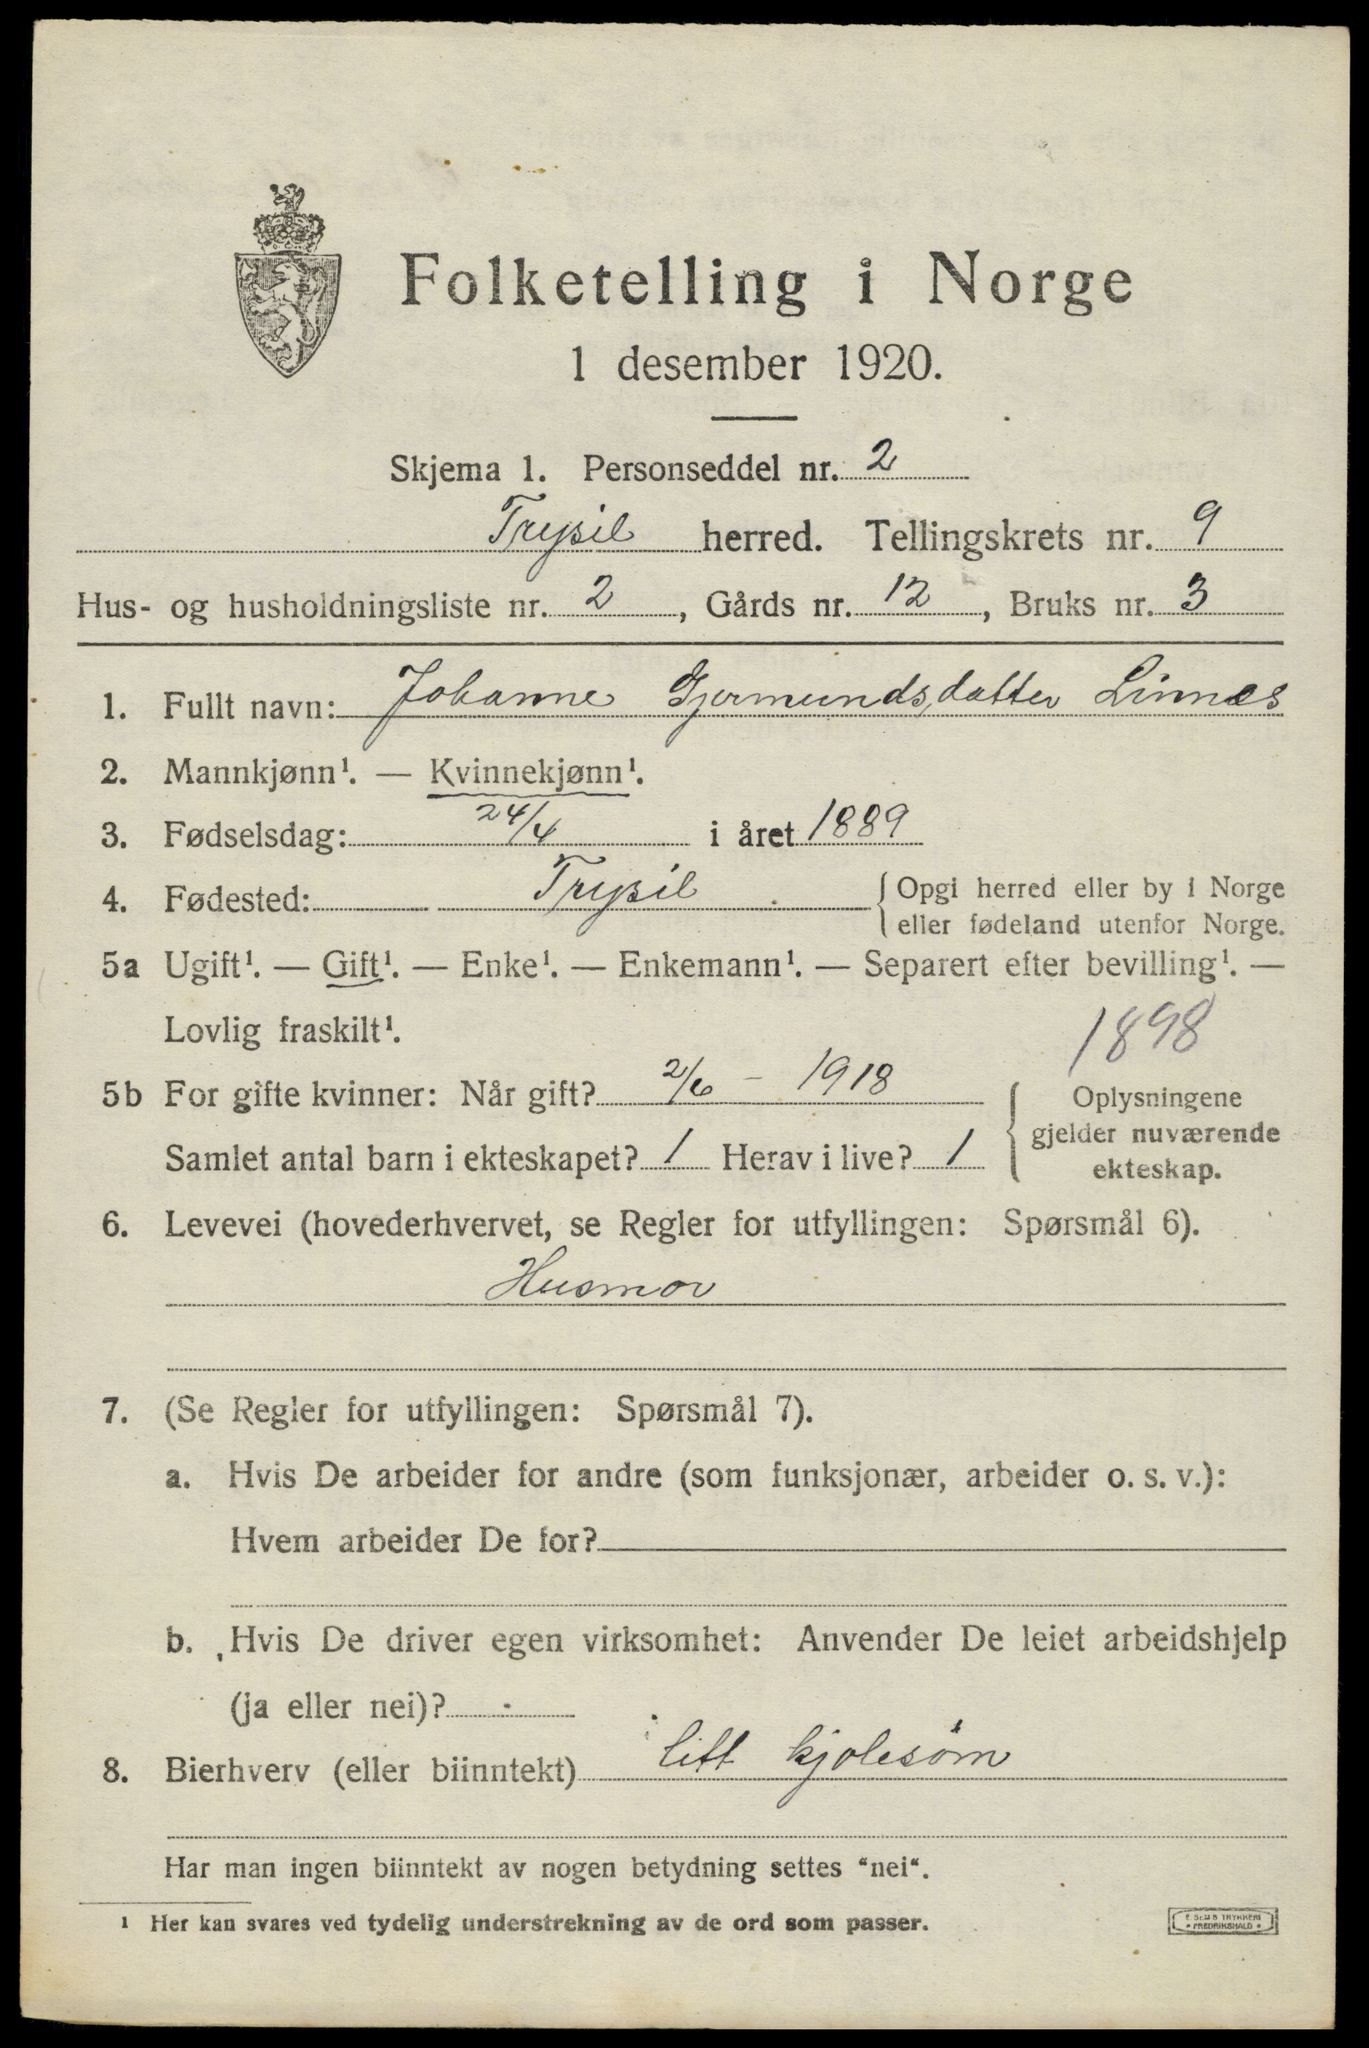 Folketelling i Norge
1 desember 1920.
Skjema 1. Personseddel nr. 2
Trysil herred. Tellingskrets nr. 9
Hus- og husholdningsliste nr. 2, Gårds nr. 12, Bruks nr. 3
1. Fullt navn: Johanne Gjermundsdatter Linnes
2. Mannkjønn¹. — Kvinnekjønn¹.
3. Fødselsdag: 24/4 i året 1889
4. Fødested: Trysil {Opgi herred eller by i Norge
eller fødeland utenfor Norge.
5a Ugift¹. — Gift¹. — Enke¹. — Enkemann¹. — Separert efter bevilling¹. —
Lovlig fraskilt¹.
1898
5b For gifte kvinner: Når gift? 2/6 - 1918
Samlet antal barn i ekteskapet? 1 Herav i live? 1
{Oplysningene
gjelder nuværende
ekteskap.
6. Levevei (hovederhvervet, se Regler for utfyllingen: Spørsmål 6).
Husmor
7. (Se Regler for utfyllingen: Spørsmål 7).
a. Hvis De arbeider for andre (som funksjonær, arbeider o. s. v.):
Hvem arbeider De for?
b. Hvis De driver egen virksomhet: Anvender De leiet arbeidshjelp
(ja eller nei)? -
8. Bierhverv (eller biinntekt) litt kjolesøm
Har man ingen biinntekt av nogen betydning settes "nei".
¹ Her kan svares ved tydelig understrekning av de ord som passer.
E. SEMS TRYKKERI
* FREDRIKSHALD *